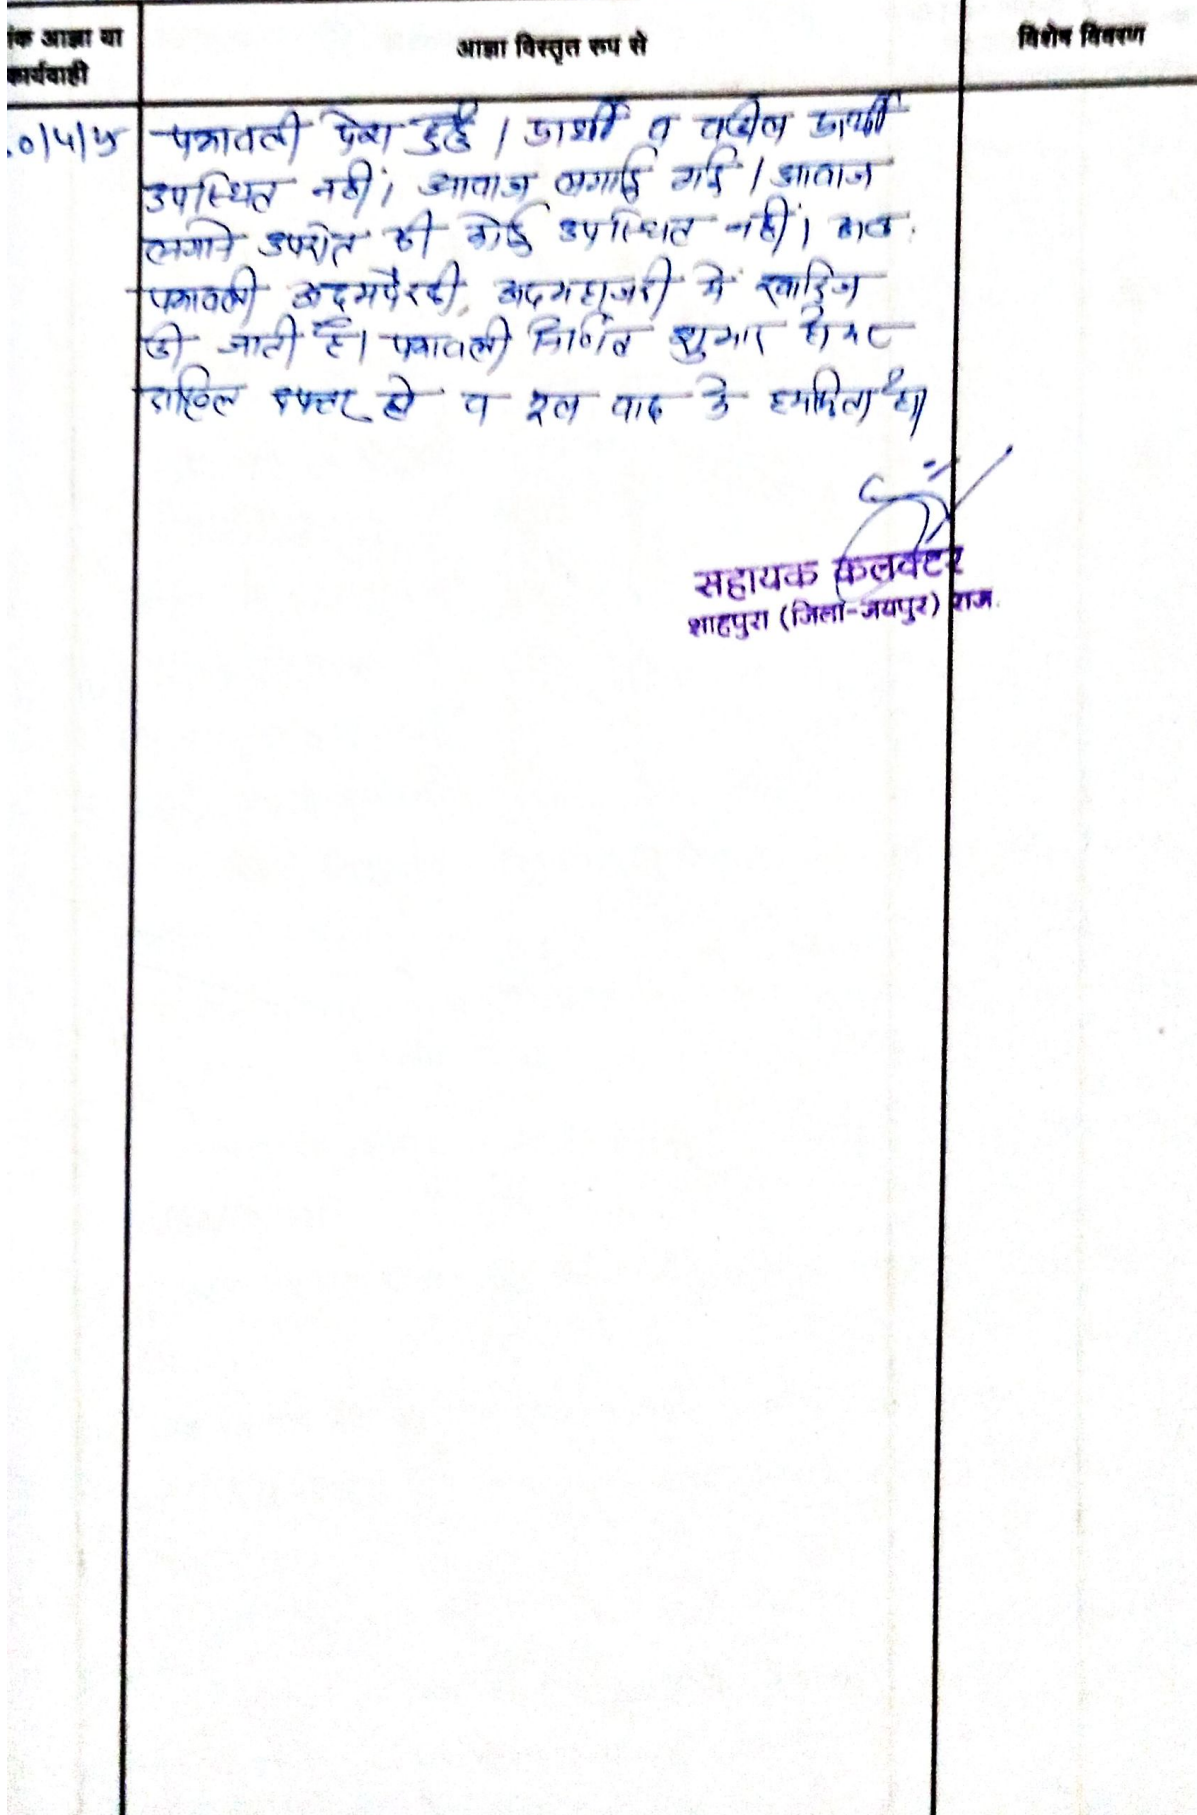 क आज्ञा या
कार्यवाही
आज्ञा विस्तृत रुप से
विशेष विवरण
पत्रावली पेश हुई । प्रार्थी व वकील प्रार्थी
उपस्थित नहीं। आवाज लगाई गई । आवाज
लगाने उपरांत भी कोई उपस्थित नहीं।
पत्रावली अदमपैरवी, अदमहाजरी में खारिज
की जाती है। पत्रावली निर्णित शुमार होकर
दाखिल दफ्तर हो व मूल वाद के
सहायक कलक्टर
शाहपुरा (जिला-जयपुर) राज.